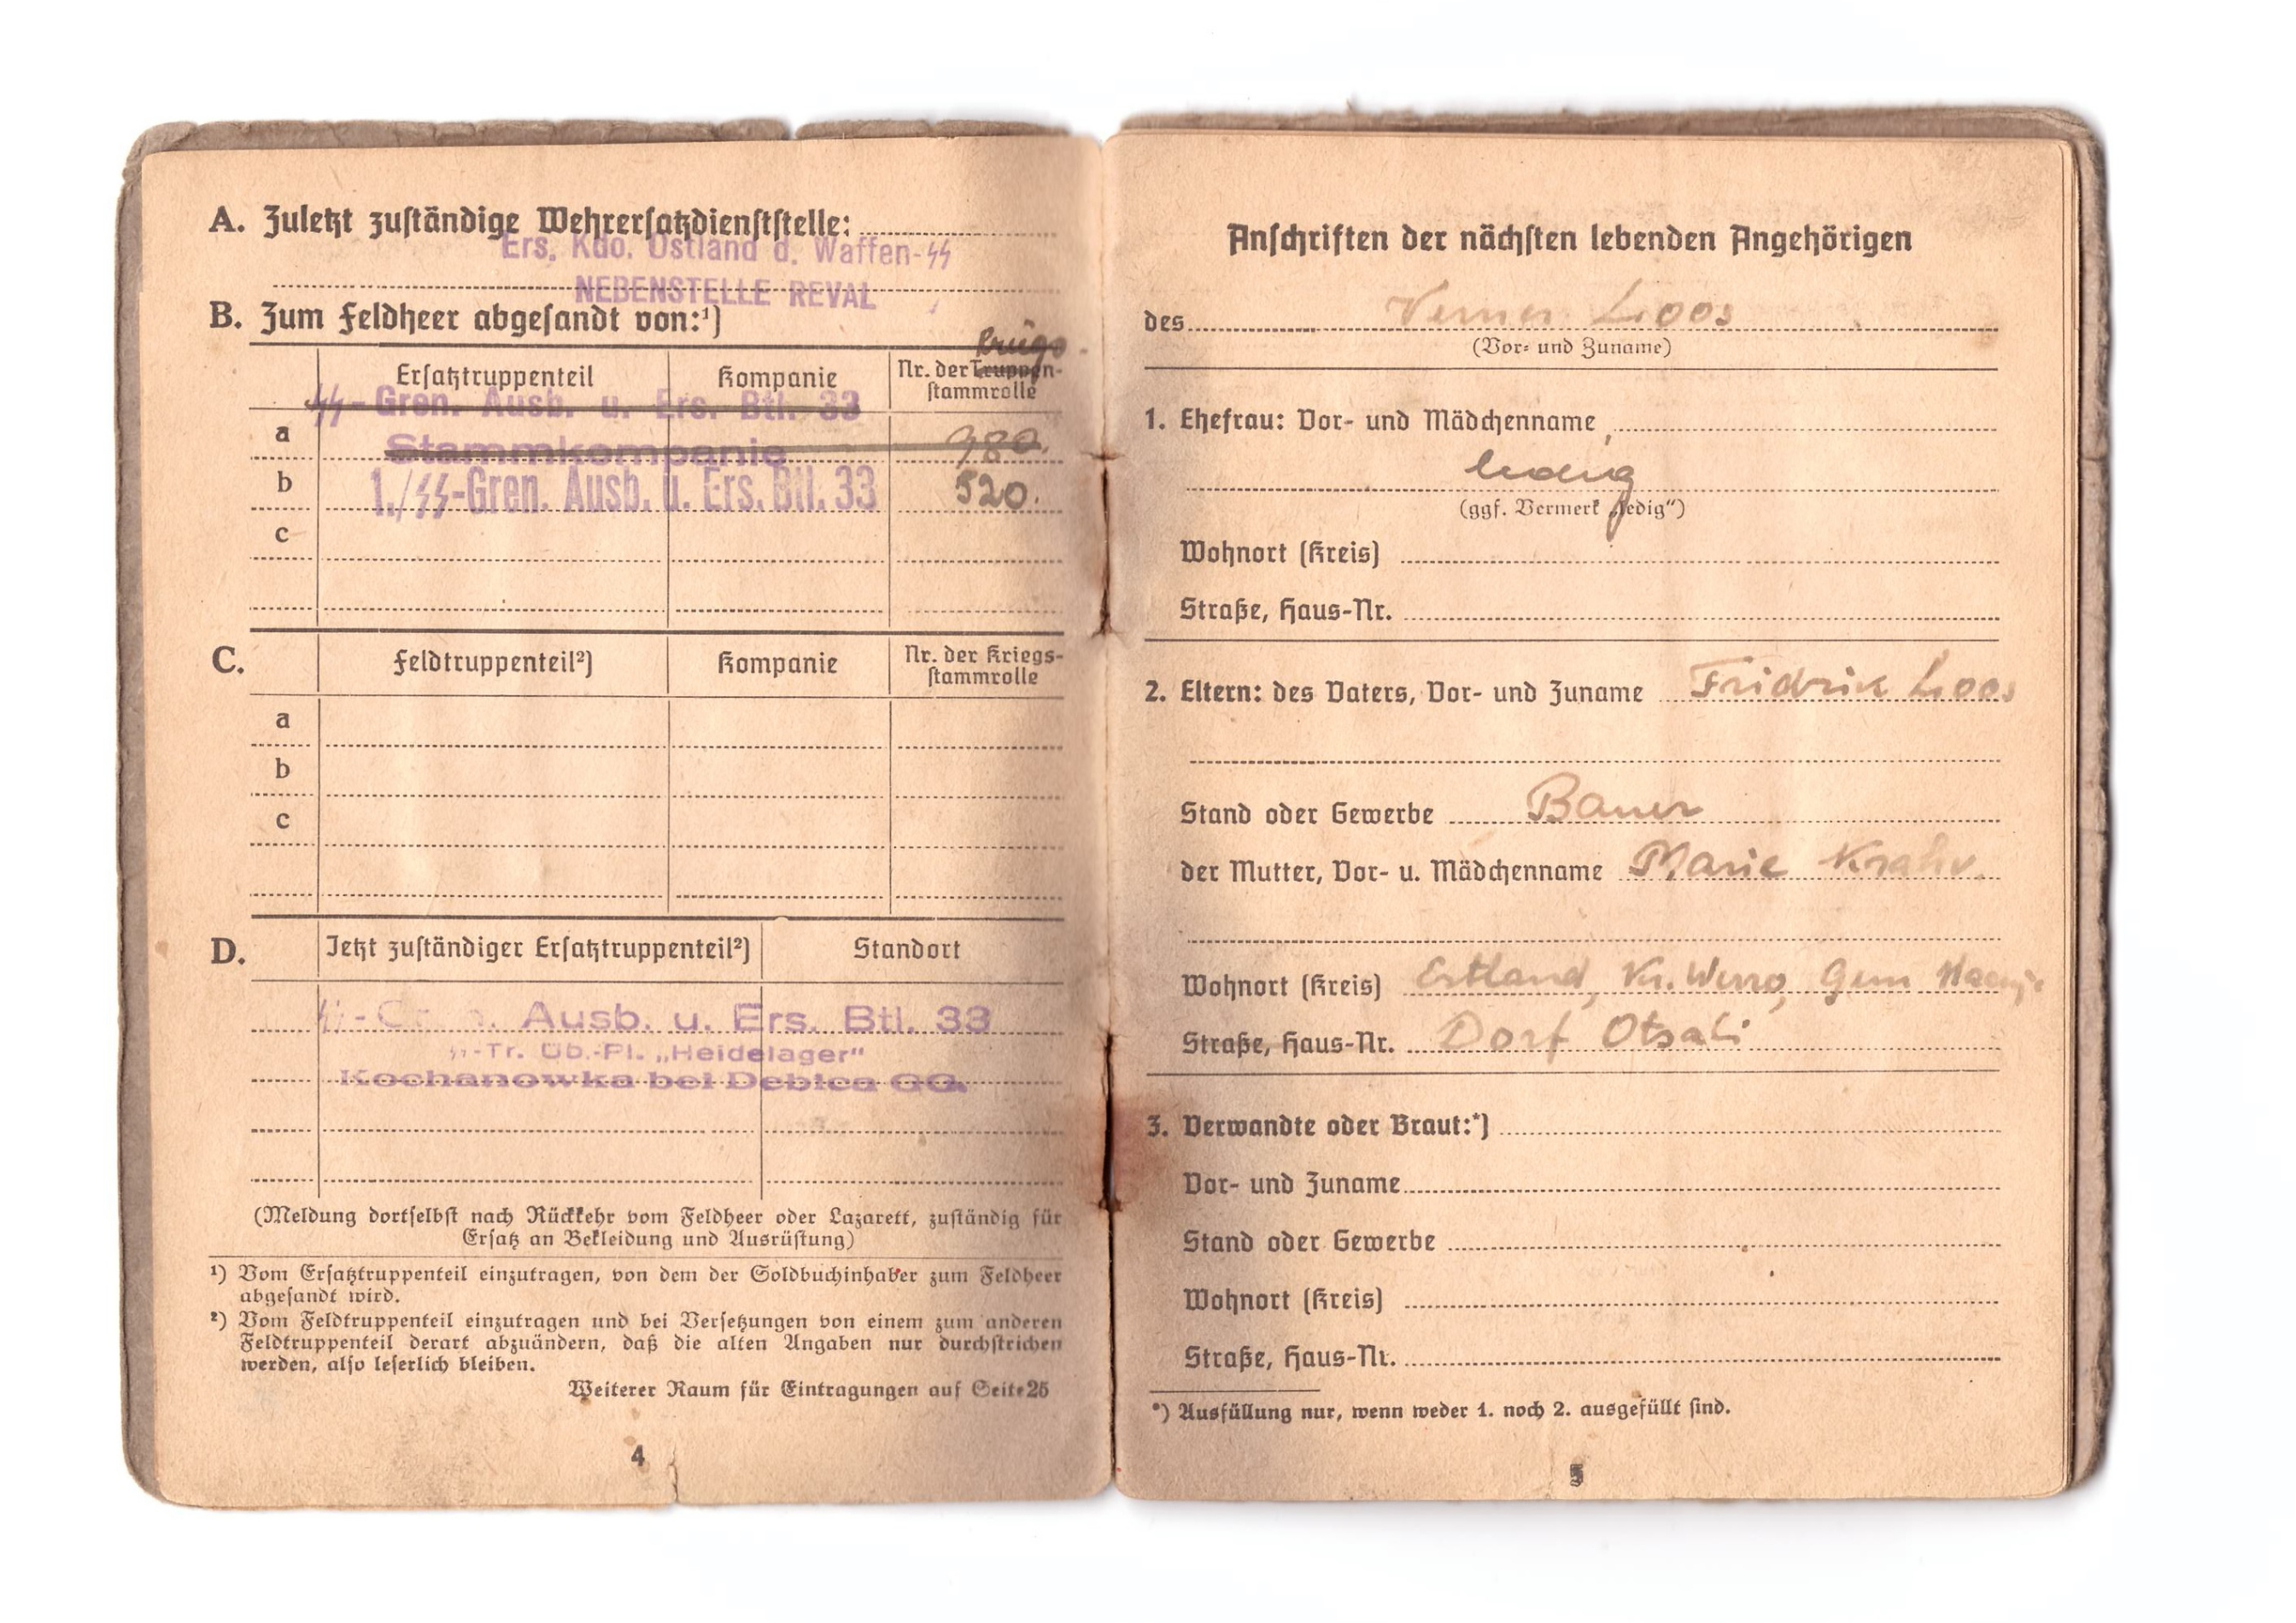 A. Zuletzt zuständige Wehrersatzdienststelle:
Ers. Kdo. Ostland d. Waffen-SS
NEBENSTELLE REVAL
B. Zum Feldheer abgesandt von:¹)
Ersatztruppenteil Kompanie Nr. der Truppen-
stammrolle
SS-Gren. Ausb. u. Ers. Btl. 33
a Stammkompanie 980.
b 1./SS-Gren. Ausb. u. Ers. Btl. 33 520.
c
C. Feldtruppenteil²) Kompanie Nr. der Kriegs-
stammrolle
a
b
c
D. Jetzt zuständiger Ersatztruppenteil²) Standort
SS-Gren. Ausb. u. Ers. Btl. 33
SS-Tr. Üb.-Pl. „Heidelager“
Kochanowka bei Debica GG.
(Meldung dortselbst nach Rückkehr vom Feldheer oder Lazarett, zuständig für
Ersatz an Bekleidung und Ausrüstung)
¹) Vom Ersatztruppenteil einzutragen, von dem der Soldbuchinhaber zum Feldheer
abgesandt wird.
²) Vom Feldtruppenteil einzutragen und bei Versetzungen von einem zum anderen
Feldtruppenteil derart abzuändern, daß die alten Angaben nur durchstrichen
werden, also leserlich bleiben.
Weiterer Raum für Eintragungen auf Seite 25
4
Anschriften der nächsten lebenden Angehörigen
des Verner Loos
(Vor- und Zuname)
1. Ehefrau: Vor- und Mädchenname
ledig
(ggf. Vermerk „ledig“)
Wohnort (Kreis)
Straße, Haus-Nr.
2. Eltern: des Vaters, Vor- und Zuname Fridrik Loos
Stand oder Gewerbe Bauer
der Mutter, Vor- u. Mädchenname Marie Krahv.
Wohnort (Kreis) Estland, Kr. Werro, Gem
Straße, Haus-Nr. Dorf Otsali
3. Verwandte oder Braut:*)
Vor- und Zuname
Stand oder Gewerbe
Wohnort (Kreis)
Straße, Haus-Nr.
*) Ausfüllung nur, wenn weder 1. noch 2. ausgefüllt sind.
5